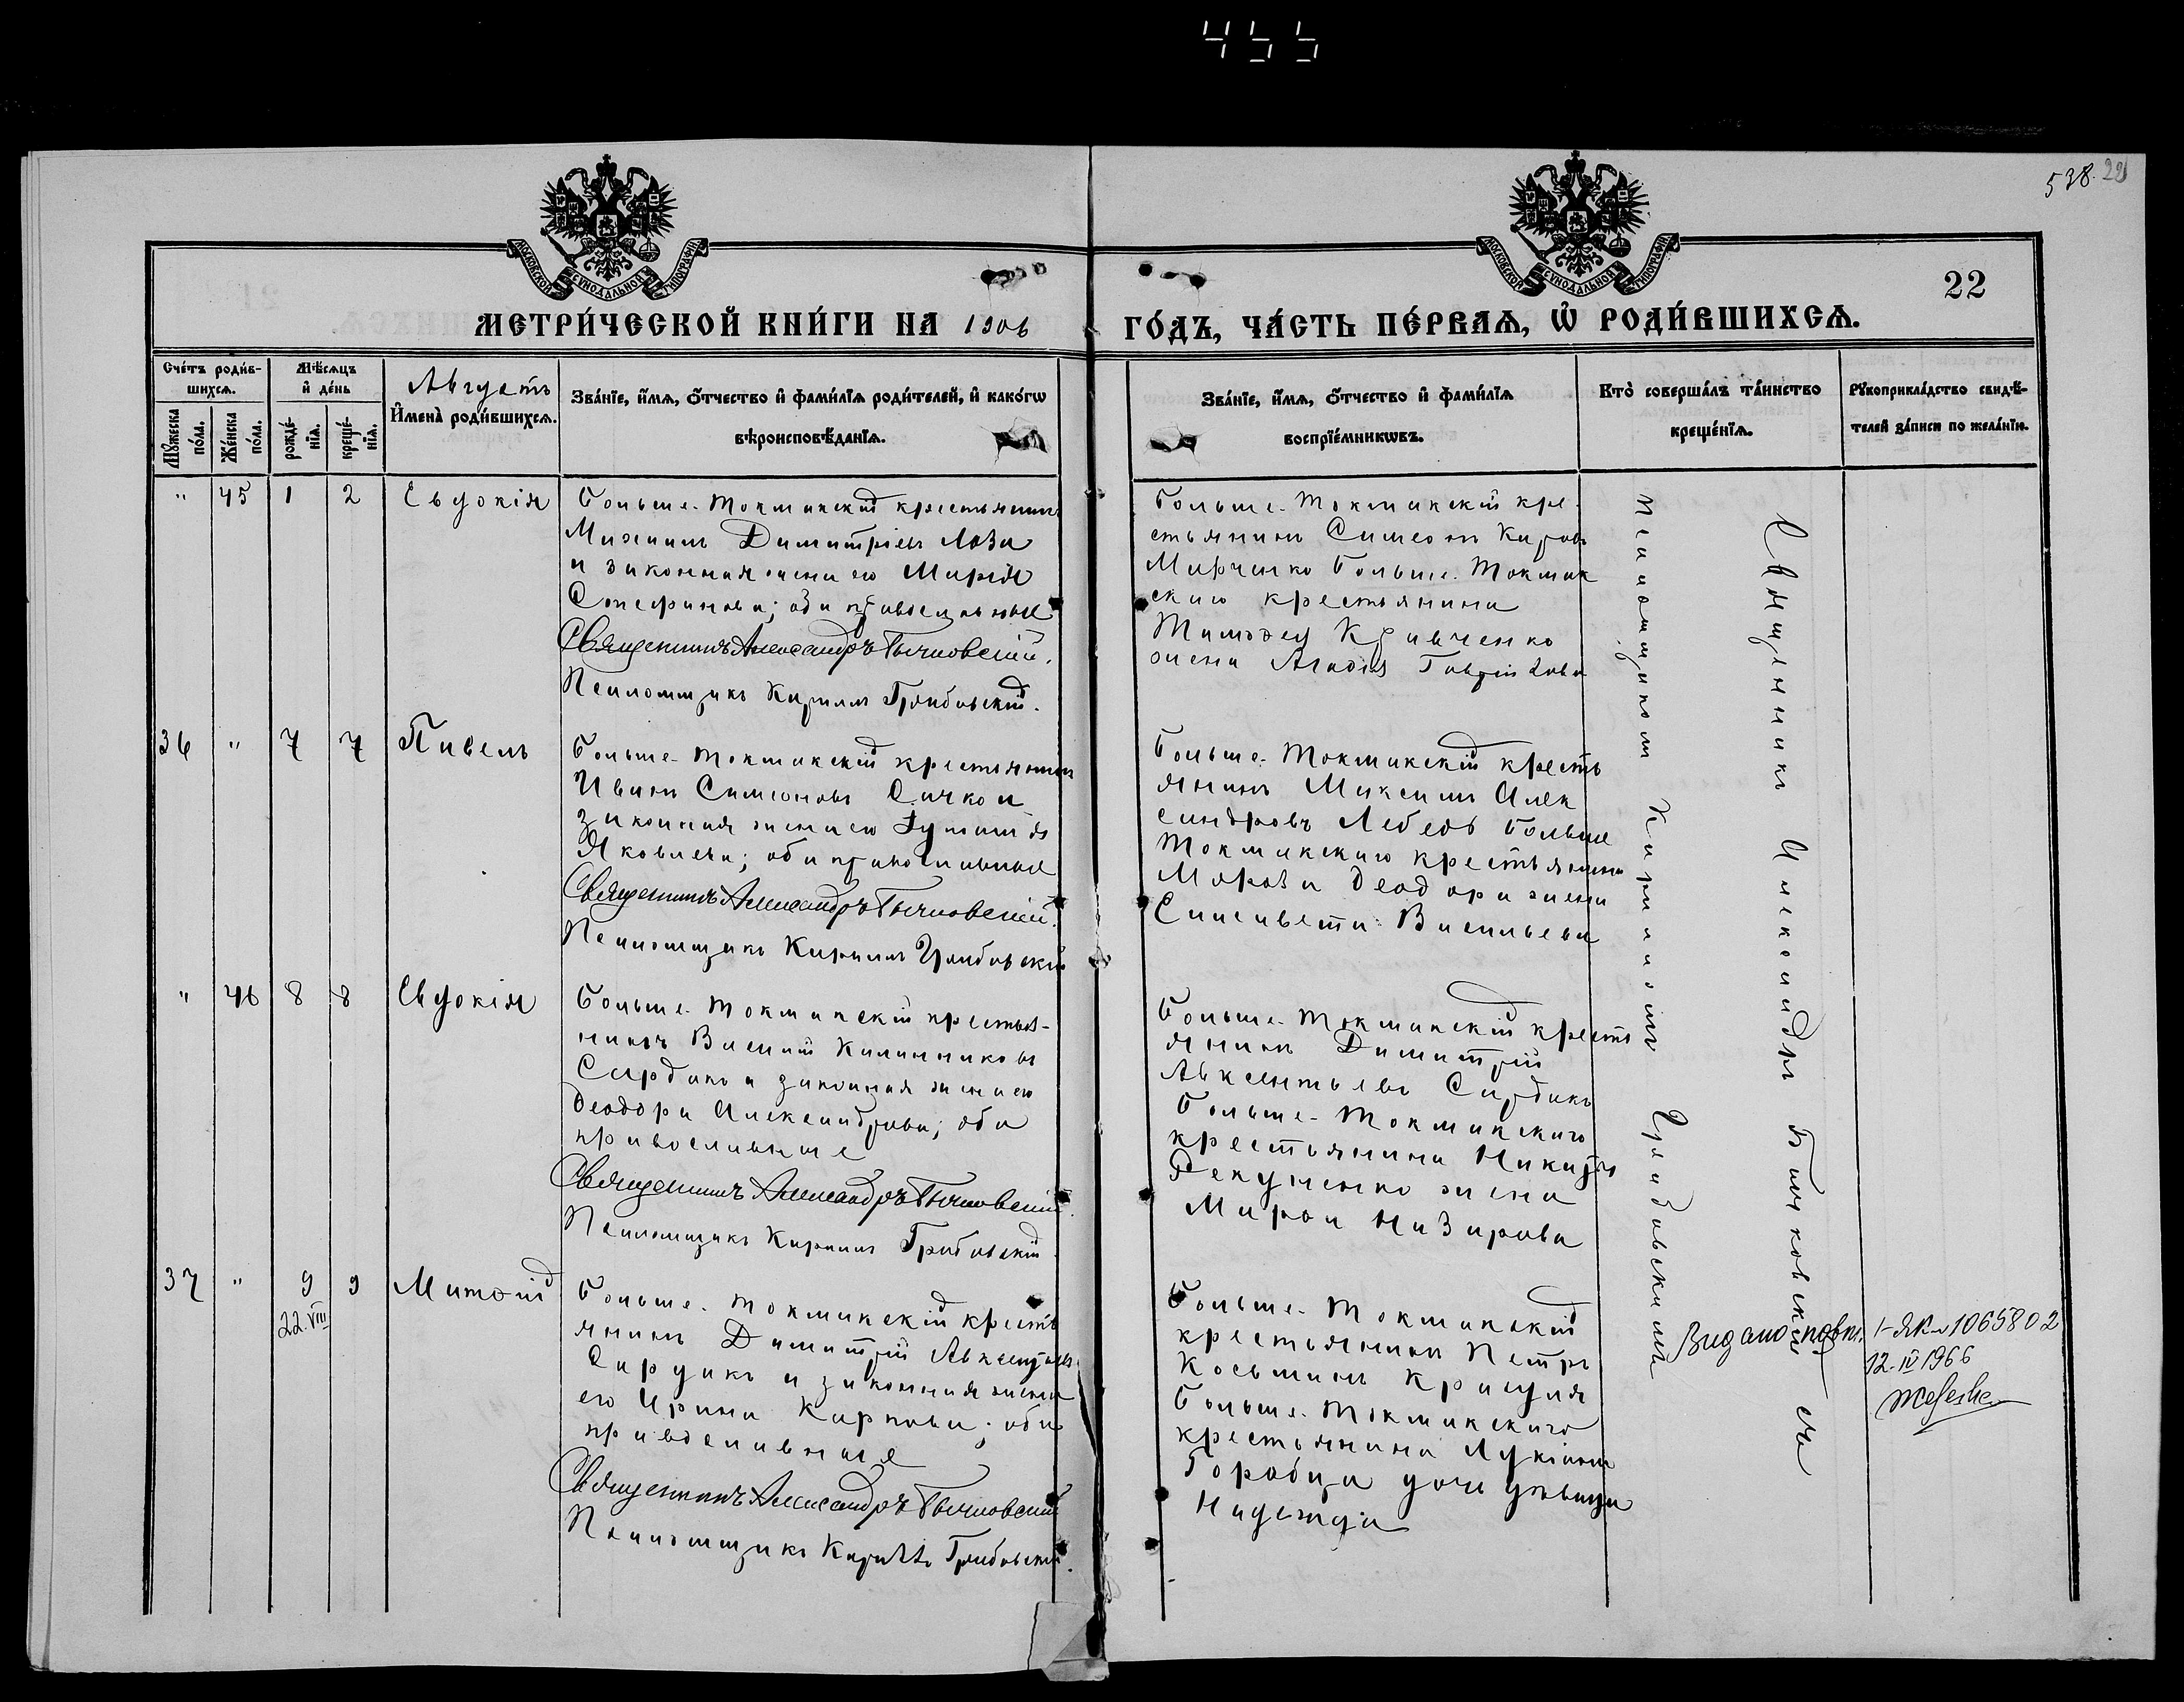 455
538. 22
МОСКОВСКОЙ СѴНОДАЛЬНОЙ ТИПОГРАФІИ
МОСКОВСКОЙ СѴНОДАЛЬНОЙ ТИПОГРАФІИ
22
МЕТРИ́ЧЕСКОЙ КНИ́ГИ НА 1906
ГО́ДЪ, ЧА́СТЬ ПЕ́РВАѦ, Ѡ҆ РОДИ́ВШИХСѦ.
Сче́тъ роди́в-
шихсѧ.
Мꙋ́жеска по́ла.
Же́нска по́ла.
Мѣ́сѧцъ
и҆ де́нь
рожде́-
нїѧ.
креще́-
нїѧ.
Августъ
И҆мена̀ роди́вшихсѧ.
Зва́нїе, и҆́мѧ, ѻ҆́тчество и҆ фами́лїѧ роди́телей, и҆ како́гѡ
вѣроисповѣ́данїѧ.
Зва́нїе, и҆́мѧ, ѻ҆́тчество и҆ фами́лїѧ
воспрїе́мникѡвъ.
Кто̀ соверша́лъ та́инство
креще́нїѧ.
Рꙋкоприкла́дство свидѣ́-
телей за́писи по жела́нїю.
" 45 1 2 Евдокія
Больше-Токмакскій крестьянинъ
Михаилъ Димитріевъ Лоза
и законная жена его Марія
Стефанова; оба православные
Священникъ Александръ Бычковскій.
Псаломщикъ Кириллъ Грабовскій.
Больше-Токмакскій кре-
стьянинъ Симеонъ Карповъ
Марченко Больше-Токмак
скаго крестьянина
Тимофея Кравченко
жена Агафія Гаврилова
36 " 7 7 Павелъ
Больше-Токмакскій крестьянинъ
Иванъ Симеоновъ Сичко и
законная жена его Евфимія
Яковлева; оба православные
Священникъ Александръ Бычковскій.
Псаломщикъ Кириллъ Грабовскій
Больше-Токмакскій кресть
янинъ Максимъ Алек
сандровъ Лебедь Больше
Токмакскаго крестьянина
Мороза Ѳеодора жена
Елисавета Васильева
" 46 8 8 Евдокія
Больше-Токмакскій крестья-
нинъ Василій Калинниковъ
Сердюкъ и законная жена его
Ѳеодора Александрова; оба
православные
Священникъ Александръ Бычковскій.
Псаломщикъ Кириллъ Грабовскій.
Больше-Токмакскій кресть
янинъ Димитрій
Авксентьевъ Сердюкъ
Больше-Токмакскаго
крестьянина Никиты
жена
Назарова
37 " 9 9 Матѳій
22.VIII
Больше-Токмакскій кресть
янинъ Димитрій Авксентьевъ
Сердюкъ и законная жена
его Ирина Карпова; оба
православные
Священникъ Александръ Бычковскій
Псаломщикъ Кириллъ Грабовскій.
Больше-Токмакскій
крестьянинъ Петръ
Косьминъ
Больше-Токмакскаго
крестьянина Лукіана
Горобца дочь дѣвица
Надежда
Священникъ Александръ Бычковскій съ
псаломщикомъ Кирилломъ Грабовскимъ
Видано повт. I-ЯК № 1065802
12.IV 1966